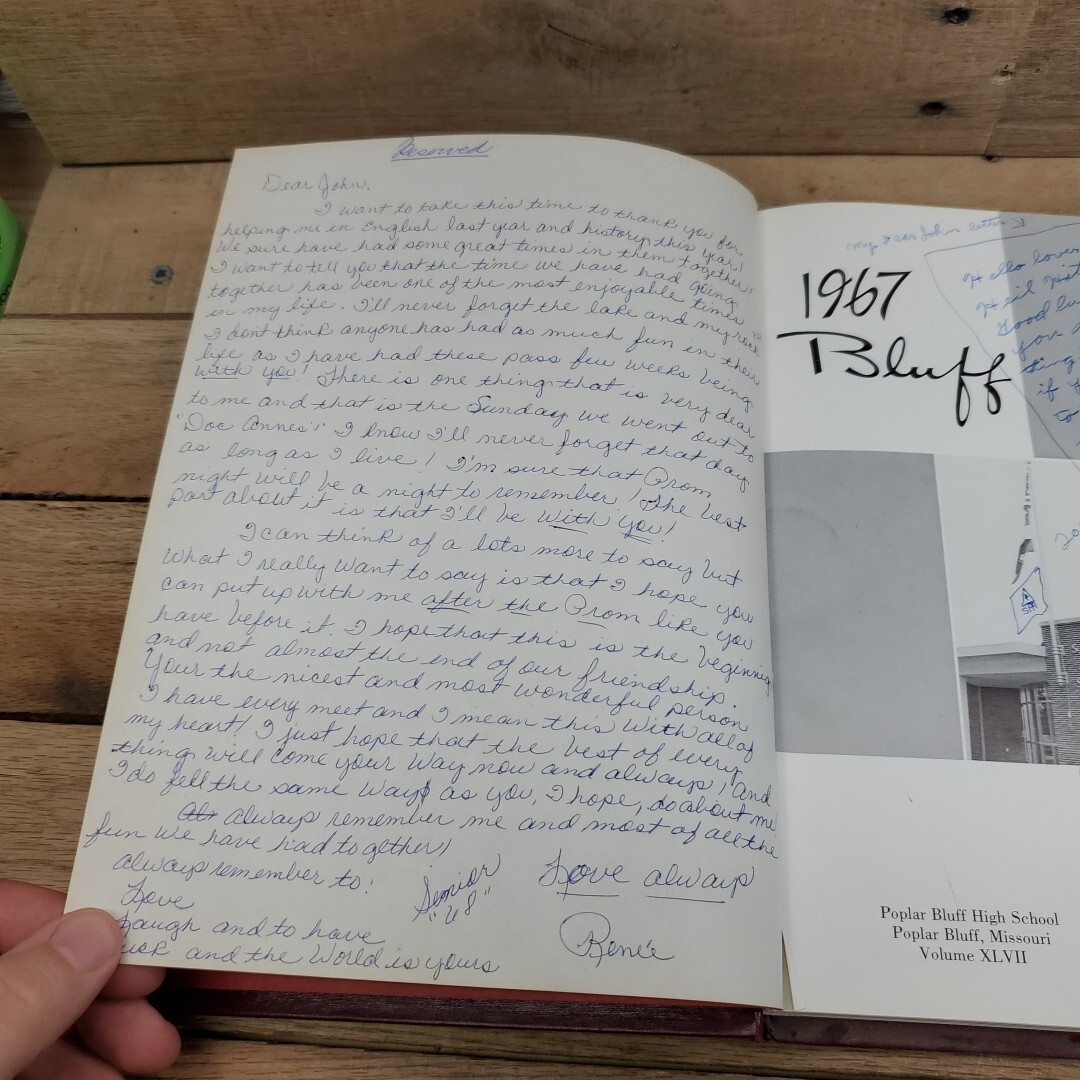 Reserved
Dear John,
I want to take this time to thank you for
helping me in English last year and history this year!
We sure have had some great times in them together!
I want to tell you that the time we have had going
together has been one of the most enjoyable times
in my life. I'll never forget the lake and my rock
I dont think anyone has had as much fun in their
life as I have had these pass few weeks being
with you! There is one thing that is very dear
to me and that is the Sunday we went out to
"Doc Annes"! I know I'll never forget that day
as long as I live! I'm sure that Prom
night will be a night to remember! The best
part about it is that I'll be with you!
I can think of a lots more to say but
what I really want to say is that I hope you
can put up with me after the Prom like you
have before it. I hope that this is the beginning
and not almost the end of our friendship.
Your the nicest and most wonderful person
I have every meet and I mean this with all of
my heart! I just hope that the best of every
thing will come your way now and always! And
I do fell the same way as you, I hope, do about me
always remember me and most of all the
fun we have had together!
always remember to:
Love
Laugh and to have
and the World is yours
Senior
"68"
Love always
Renée
my Dear John letter
1967
Bluff
Hello lover
Good
if
Poplar Bluff High School
Poplar Bluff, Missouri
Volume XLVII